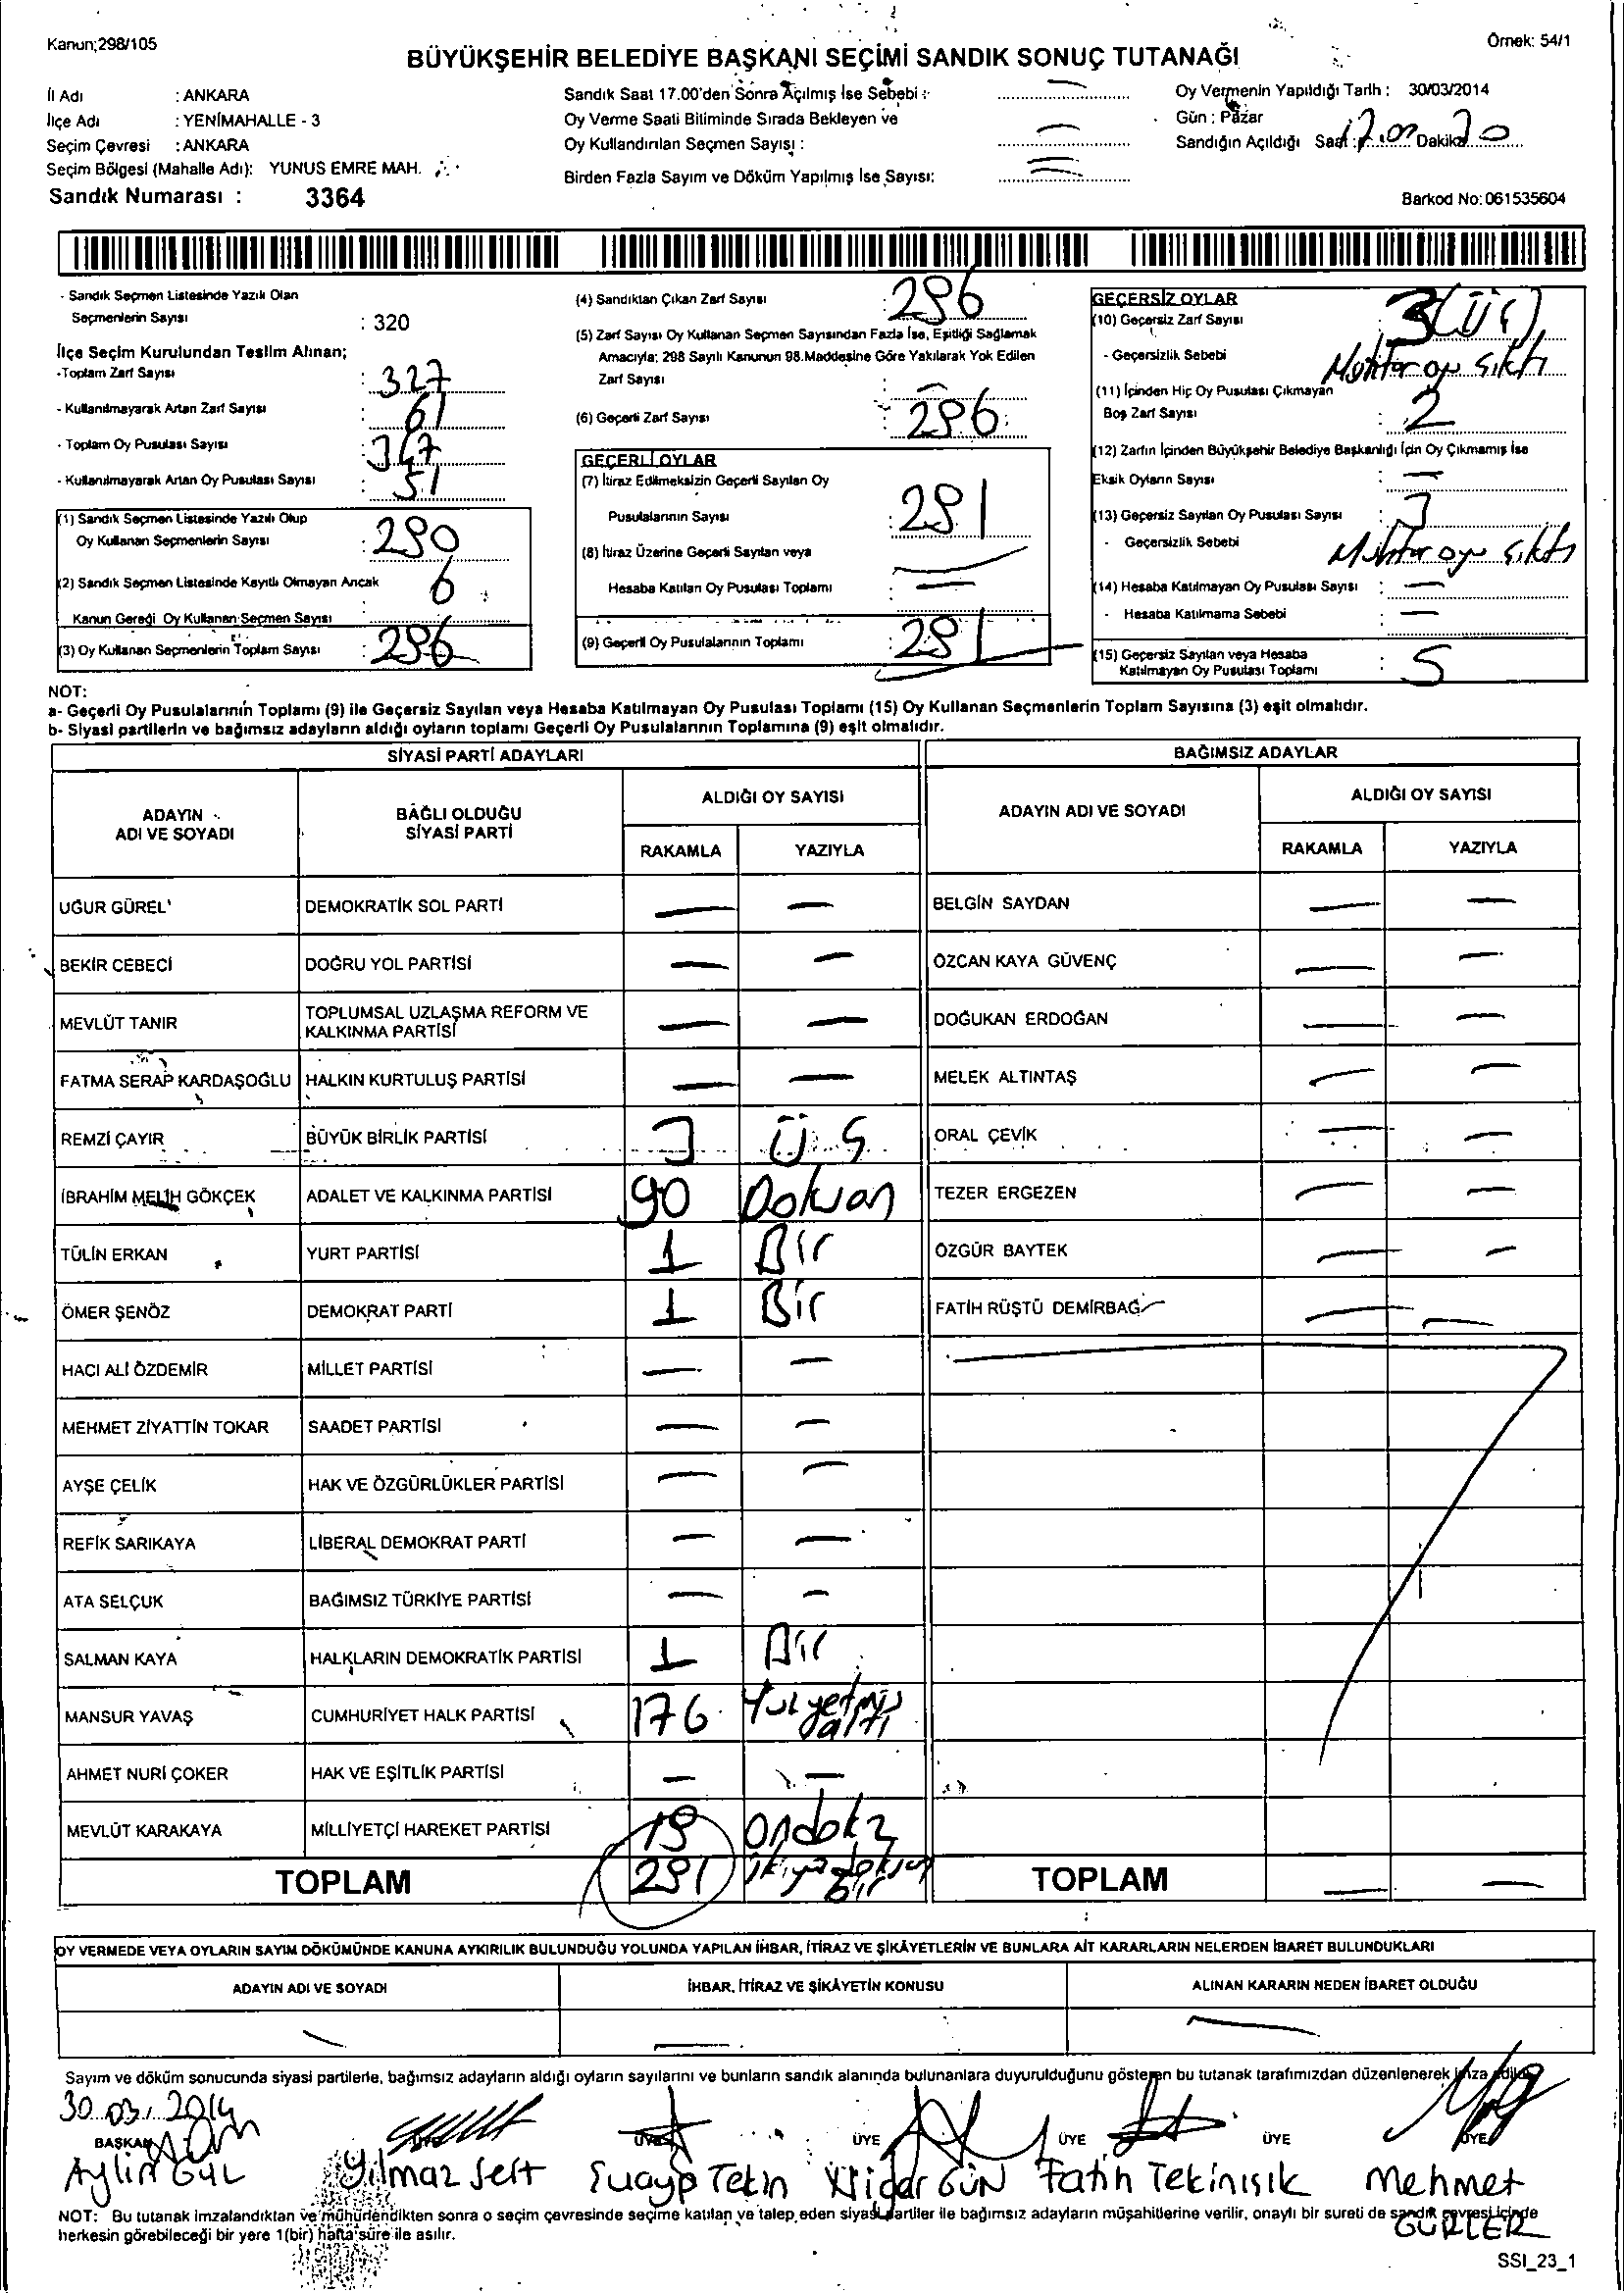 Kanun;298/105
Örnek: 54/1
BÜYÜKŞEHİR BELEDİYE BAŞKANI SEÇİMİ SANDIK SONUÇ TUTANAĞI
İl Adı : ANKARA
İlçe Adı : YENİMAHALLE - 3
Seçim Çevresi : ANKARA
Seçim Bölgesi (Mahalle Adı): YUNUS EMRE MAH.
Sandık Numarası : 3364
Sandık Saat 17.00'den Sonra Açılmış İse Sebebi : —
Oy Verme Saati Bitiminde Sırada Bekleyen ve
Oy Kullandırılan Seçmen Sayısı : —
Birden Fazla Sayım ve Döküm Yapılmış İse Sayısı: —
Oy Vermenin Yapıldığı Tarih : 30/03/2014
Gün : Pazar
Sandığın Açıldığı Saat : 17.00 Dakika 20
Barkod No: 061535604
- Sandık Seçmen Listesinde Yazılı Olan
Seçmenlerin Sayısı : 320
İlçe Seçim Kurulundan Teslim Alınan;
-Toplam Zarf Sayısı : 327
- Kullanılmayarak Artan Zarf Sayısı : 61
- Toplam Oy Pusulası Sayısı : 347
- Kullanılmayarak Artan Oy Pusulası Sayısı : 51
(1) Sandık Seçmen Listesinde Yazılı Olup
Oy Kullanan Seçmenlerin Sayısı : 290
(2) Sandık Seçmen Listesinde Kayıtlı Olmayan Ancak
Kanun Gereği Oy Kullanan Seçmen Sayısı : 6
(3) Oy Kullanan Seçmenlerin Toplam Sayısı : 296
(4) Sandıktan Çıkan Zarf Sayısı : 296
(5) Zarf Sayısı Oy Kullanan Seçmen Sayısından Fazla İse, Eşitliği Sağlamak
Amacıyla; 298 Sayılı Kanunun 98.Maddesine Göre Yakılarak Yok Edilen
Zarf Sayısı : —
(6) Geçerli Zarf Sayısı : 296
GEÇERLİ OYLAR
(7) İtiraz Edilmeksizin Geçerli Sayılan Oy
Pusulalarının Sayısı : 291
(8) İtiraz Üzerine Geçerli Sayılan veya
Hesaba Katılan Oy Pusulası Toplamı : —
(9) Geçerli Oy Pusulalarının Toplamı : 291
GEÇERSİZ OYLAR
(10) Geçersiz Zarf Sayısı : 3 (Üç)
- Geçersizlik Sebebi Muhtar oyu Çıktı
(11) İçinden Hiç Oy Pusulası Çıkmayan
Boş Zarf Sayısı : 2
(12) Zarfın İçinden Büyükşehir Belediye Başkanlığı İçin Oy Çıkmamış İse
Eksik Oyların Sayısı : —
(13) Geçersiz Sayılan Oy Pusulası Sayısı : 3
- Geçersizlik Sebebi Muhtar oyu Çıktı
(14) Hesaba Katılmayan Oy Pusulası Sayısı : —
- Hesaba Katılmama Sebebi : —
(15) Geçersiz Sayılan veya Hesaba
Katılmayan Oy Pusulası Toplamı : 5
NOT:
a- Geçerli Oy Pusulalarının Toplamı (9) ile Geçersiz Sayılan veya Hesaba Katılmayan Oy Pusulası Toplamı (15) Oy Kullanan Seçmenlerin Toplam Sayısına (3) eşit olmalıdır.
b- Siyasi partilerin ve bağımsız adayların aldığı oyların toplamı Geçerli Oy Pusulalarının Toplamına (9) eşit olmalıdır.
SİYASİ PARTİ ADAYLARI
BAĞIMSIZ ADAYLAR
ADAYIN ADI VE SOYADI
BAĞLI OLDUĞU SİYASİ PARTİ
ALDIĞI OY SAYISI
RAKAMLA YAZIYLA
ADAYIN ADI VE SOYADI
ALDIĞI OY SAYISI
RAKAMLA YAZIYLA
UĞUR GÜREL DEMOKRATİK SOL PARTİ — — BELGİN SAYDAN — —
BEKİR CEBECİ DOĞRU YOL PARTİSİ — — ÖZCAN KAYA GÜVENÇ — —
MEVLÜT TANIR TOPLUMSAL UZLAŞMA REFORM VE KALKINMA PARTİSİ — — DOĞUKAN ERDOĞAN — —
FATMA SERAP KARDAŞOĞLU HALKIN KURTULUŞ PARTİSİ — — MELEK ALTINTAŞ — —
REMZİ ÇAYIR BÜYÜK BİRLİK PARTİSİ 3 Üç ORAL ÇEVİK — —
İBRAHİM MELİH GÖKÇEK ADALET VE KALKINMA PARTİSİ 90 Doksan TEZER ERGEZEN — —
TÜLİN ERKAN YURT PARTİSİ 1 Bir ÖZGÜR BAYTEK — —
ÖMER ŞENÖZ DEMOKRAT PARTİ 1 Bir FATİH RÜŞTÜ DEMİRBAĞ — —
HACI ALİ ÖZDEMİR MİLLET PARTİSİ — —
MEHMET ZİYATTİN TOKAR SAADET PARTİSİ — —
AYŞE ÇELİK HAK VE ÖZGÜRLÜKLER PARTİSİ — —
REFİK SARIKAYA LİBERAL DEMOKRAT PARTİ — —
ATA SELÇUK BAĞIMSIZ TÜRKİYE PARTİSİ — —
SALMAN KAYA HALKLARIN DEMOKRATİK PARTİSİ 1 Bir
MANSUR YAVAŞ CUMHURİYET HALK PARTİSİ 176 Yüz yetmiş altı
AHMET NURİ ÇOKER HAK VE EŞİTLİK PARTİSİ — —
MEVLÜT KARAKAYA MİLLİYETÇİ HAREKET PARTİSİ 19 ondokz
TOPLAM 291 ikiyüzdoksan bir TOPLAM — —
OY VERMEDE VEYA OYLARIN SAYIM DÖKÜMÜNDE KANUNA AYKIRILIK BULUNDUĞU YOLUNDA YAPILAN İHBAR, İTİRAZ VE ŞİKÂYETLERİN VE BUNLARA AİT KARARLARIN NELERDEN İBARET BULUNDUKLARI
ADAYIN ADI VE SOYADI İHBAR, İTİRAZ VE ŞİKÂYETİN KONUSU ALINAN KARARIN NEDEN İBARET OLDUĞU
— — —
Sayım ve döküm sonucunda siyasi partilerle, bağımsız adayların aldığı oyların sayılarını ve bunların sandık alanında bulunanlara duyurulduğunu gösteren bu tutanak tarafımızdan düzenlenerek imza edildi.
30.03.2014
BAŞKAN ÜYE ÜYE ÜYE ÜYE ÜYE ÜYE
Aylin GÜL Yılmaz Sert Şuayp Tekin Nigar GÜN Fatih Tekinışık Mehmet GÜRLER
NOT: Bu tutanak imzalandıktan ve mühürlendikten sonra o seçim çevresinde seçime katılan ve talep eden siyasi partiler ile bağımsız adayların müşahitlerine verilir, onaylı bir sureti de sandık çevresi içinde
herkesin görebileceği bir yere 1(bir) hafta süre ile asılır.
SSI_23_1